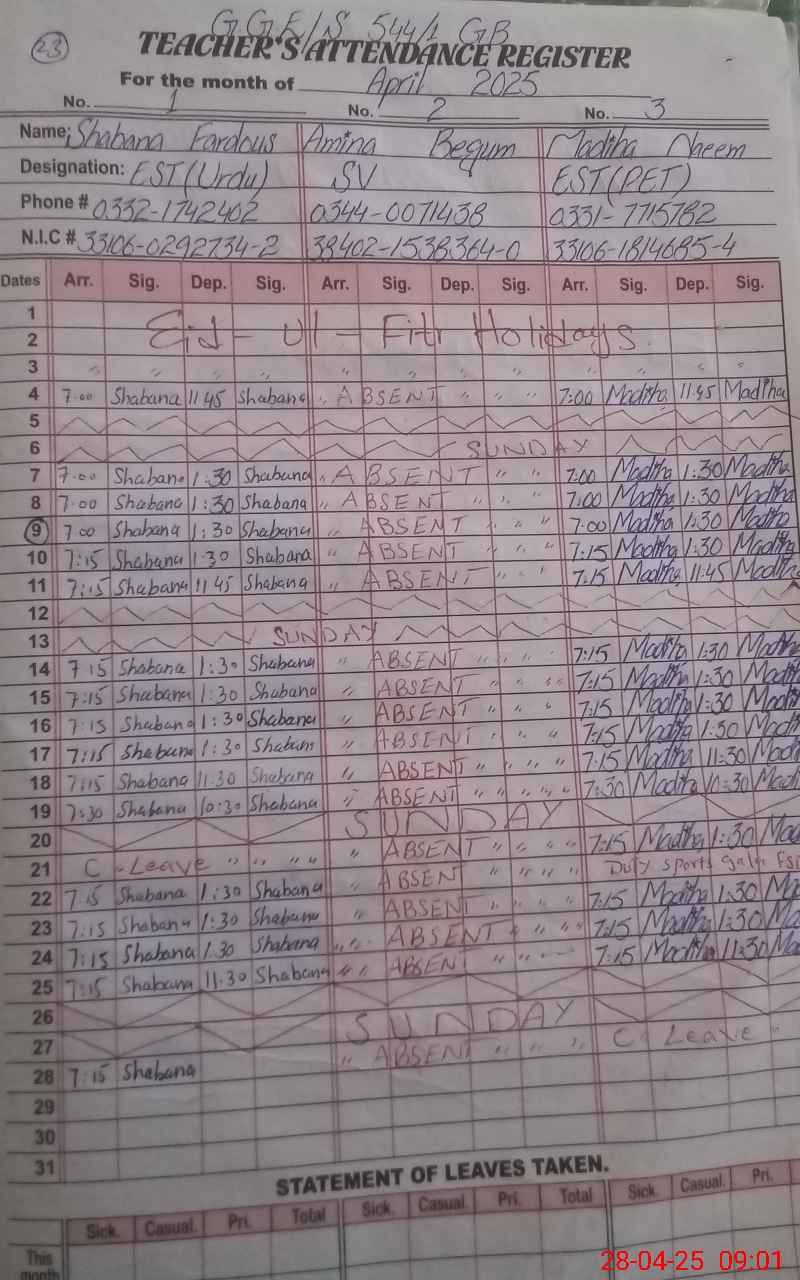 G.G.E/S 544/1 GB
23
TEACHER'S ATTENDANCE REGISTER
For the month of April 2025
No. 1 No. 2 No. 3
Name: Shabana Fardous Amina Begum Madiha Naeem
Designation: EST(Urdu) SV EST(PET)
Phone # 0332-1742402 0344-0071438 0331-7715782
N.I.C # 33106-0292734-2 38402-1538364-0 33106-1814685-4
Dates Arr. Sig. Dep. Sig. Arr. Sig. Dep. Sig. Arr. Sig. Dep. Sig.
1
2 Eid-ul-Fitr Holidays.
3 " " " " " " " " " " "
4 7.00 Shabana 11 45 Shabana " ABSENT " " " 7:00 Madiha 11:45 Madiha
5
6 SUNDAY
7 7.00 Shabana 1:30 Shabana " ABSENT " " 7:00 Madiha 1:30 Madiha
8 7.00 Shabana 1:30 Shabana " ABSENT " " 7:00 Madiha 1:30 Madiha
9 7 00 Shabana 1:30 Shabana " ABSENT " " " 7:00 Madiha 1:30 Madiha
10 7:15 Shabana 1.30 Shabana " ABSENT " " " 7:15 Madiha 1:30 Madiha
11 7:15 Shabana 11 45 Shabana " ABSENT " " 7:15 Madiha 11:45 Madiha
12
13 SUNDAY
14 7:15 Shabana 1:30 Shabana " ABSENT " " " 7:15 Madiha 1:30 Madiha
15 7:15 Shabana 1:30 Shabana " ABSENT " " " 7:15 Madiha 1:30 Madiha
16 7:15 Shabana 1:30 Shabana " ABSENT " " " 7:15 Madiha 1:30 Madiha
17 7:15 Shabana 1:30 Shabana " ABSENT " " " 7:15 Madiha 1:30 Madiha
18 7:15 Shabana 11.30 Shabana " ABSENT " " " 7:15 Madiha 11:30 Madi
19 7:30 Shabana 10:30 Shabana " ABSENT " " " " 7:30 Madiha 10:30 Madi
20 SUNDAY
21 C-Leave " " " " " ABSENT " " " " 7:15 Madiha 1:30 Mad
22 7.15 Shabana 1:30 Shabana " ABSENT " " " " Duty sports gala
23 7:15 Shabana 1:30 Shabana " ABSENT " " " " 7:15 Madiha 1:30 Ma
24 7:15 Shabana 1.30 Shabana " " ABSENT " " " " 7:15 Madiha 1:30 Ma
25 7:15 Shabana 11.30 Shabana " " ABSENT " " 7:15 Madiha 11:30 Mad
26
27 SUNDAY
28 7:15 Shabana " ABSENT " " " C Leave "
29
30
31
STATEMENT OF LEAVES TAKEN.
Sick. Casual. Pri. Total Sick. Casual. Pri. Total Sick. Casual. Pri.
This month
28-04-25 09:01